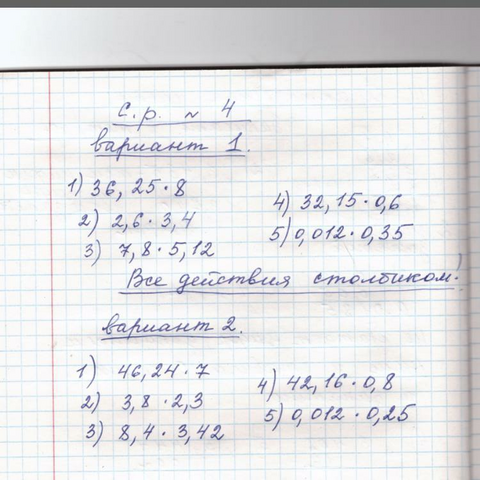 с.р. № 4
вариант 1.
1) 36,25·8
2) 2,6·3,4
3) 7,8·5,12
4) 32,15·0,6
5) 0,012·0,35
Все действия столбиком!
вариант 2.
1) 46,24·7
2) 3,8·2,3
3) 8,4·3,42
4) 42,16·0,8
5) 0,012·0,25